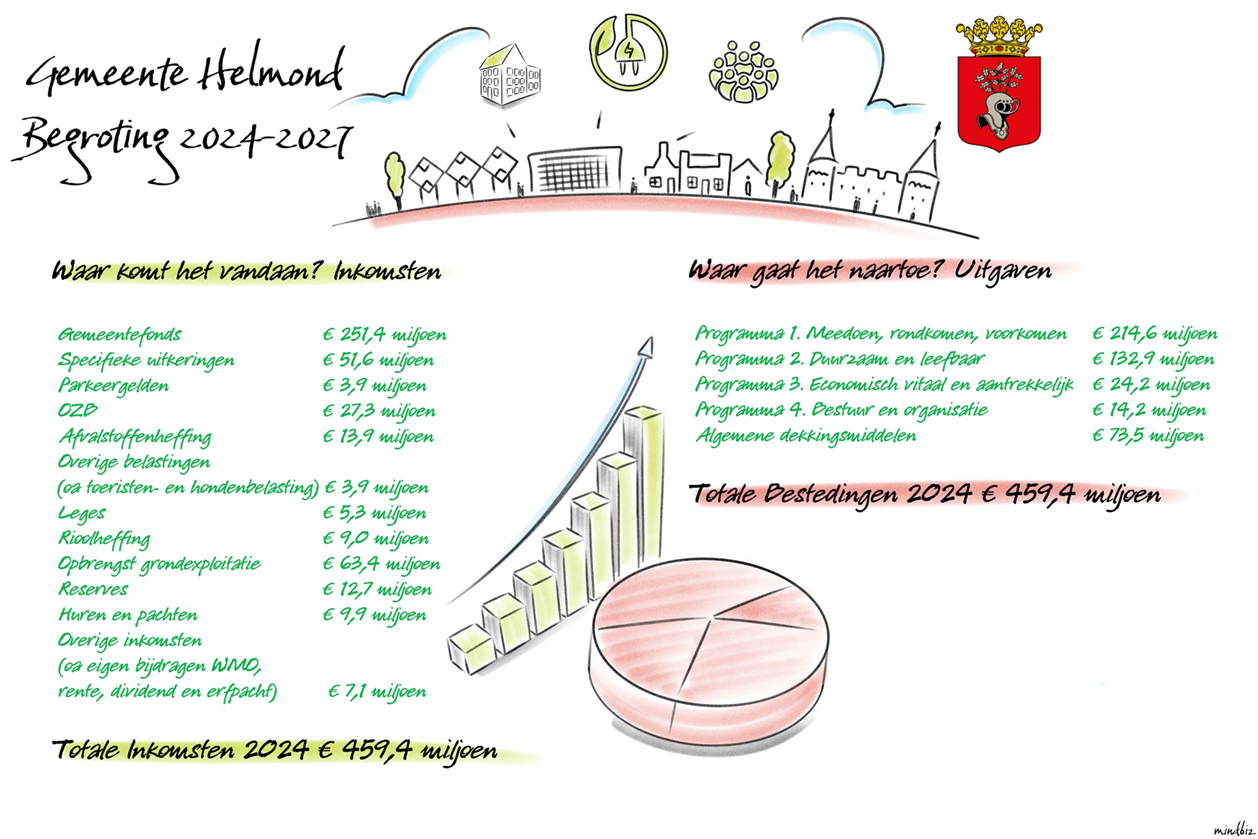 Gemeente Helmond
Begroting 2024-2027
Waar komt het vandaan? Inkomsten
Gemeentefonds € 251,4 miljoen
Specifieke uitkeringen € 51,6 miljoen
Parkeergelden € 3,9 miljoen
OZB € 27,3 miljoen
Afvalstoffenheffing € 13,9 miljoen
Overige belastingen
(oa toeristen- en hondenbelasting) € 3,9 miljoen
Leges € 5,3 miljoen
Rioolheffing € 9,0 miljoen
Opbrengst grondexploitatie € 63,4 miljoen
Reserves € 12,7 miljoen
Huren en pachten € 9,9 miljoen
Overige inkomsten
(oa eigen bijdragen WMO,
rente, dividend en erfpacht) € 7,1 miljoen
Totale Inkomsten 2024 € 459,4 miljoen
Waar gaat het naartoe? Uitgaven
Programma 1. Meedoen, rondkomen, voorkomen € 214,6 miljoen
Programma 2. Duurzaam en leefbaar € 132,9 miljoen
Programma 3. Economisch vitaal en aantrekkelijk € 24,2 miljoen
Programma 4. Bestuur en organisatie € 14,2 miljoen
Algemene dekkingsmiddelen € 73,5 miljoen
Totale Bestedingen 2024 € 459,4 miljoen
mindbiz